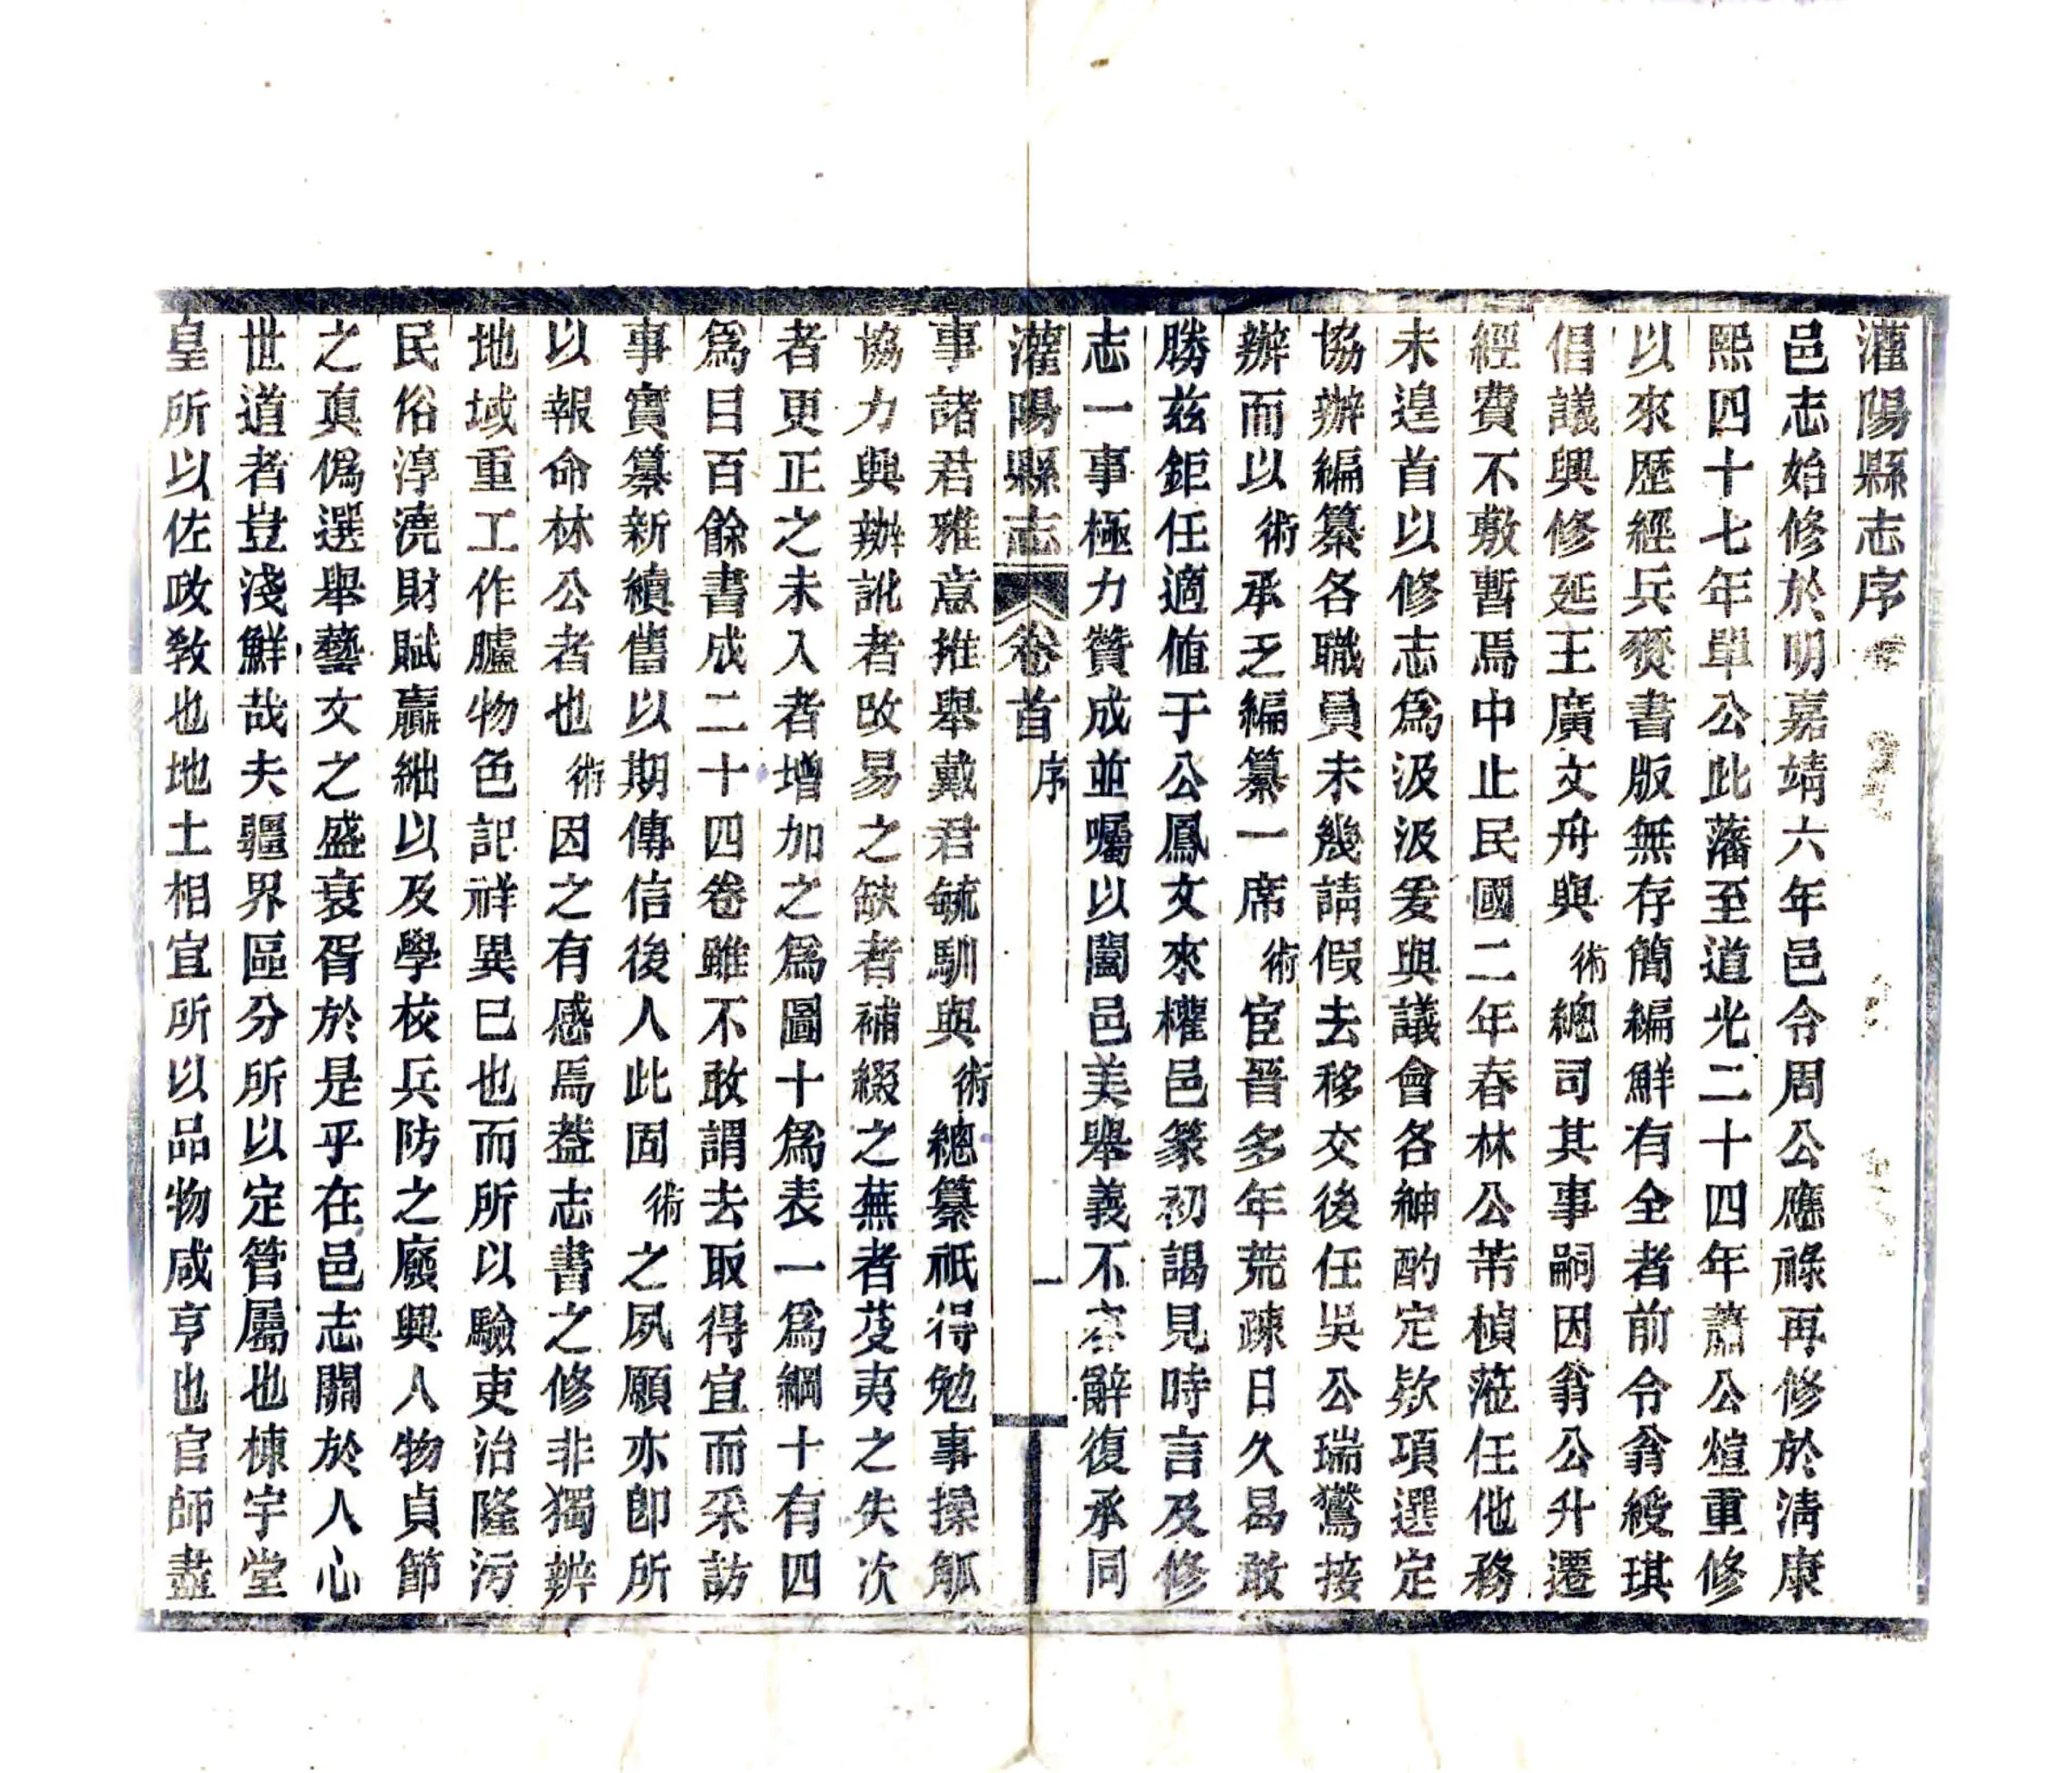 灌陽縣志序
邑志始修於明嘉靖六年邑令周公應祿再修於淸康
熙四十七年單公此藩至道光二十四年蕭公煊重修
以來歷經兵燹書版無存簡編鮮有全者前令翁綬琪
倡議興修延王廣文舟與術總司其事嗣因翁公升遷
經費不敷暫焉中止民國二年春林公芾楨蒞任他務
未遑首以修志爲汲汲爰與議會各紳酌定欵項選定
協辦編纂各職員未幾請假去移交後任吳公瑞鸞接
辦而以術承乏編纂一席術宦晉多年荒疎日久曷敢
勝兹鉅任適値于公鳳文來權邑篆初謁見時言及修
志一事極力贊成並囑以闔邑美舉義不容辭復承同
灌陽縣志 卷首 序 一
事諸君雅意推舉戴君毓馴與術總纂祇得勉事操觚
協力與辦訛者改易之缺者補綴之蕪者芟夷之失次
者更正之未入者增加之爲圖十爲表一爲綱十有四
爲目百餘書成二十四卷雖不敢謂去取得宜而采訪
事實纂新續舊以期傳信後人此固術之夙願亦卽所
以報命林公者也術因之有感焉葢志書之修非獨辨
地域重工作臚物色記祥異已也而所以驗吏治隆污
民俗淳澆財賦贏絀以及學校兵防之廢興人物貞節
之眞僞選舉藝文之盛衰胥於是乎在邑志關於人心
世道者豈淺鮮哉夫疆界區分所以定管屬也棟宇堂
皇所以佐政敎也地土相宜所以品物咸亨也官師盡